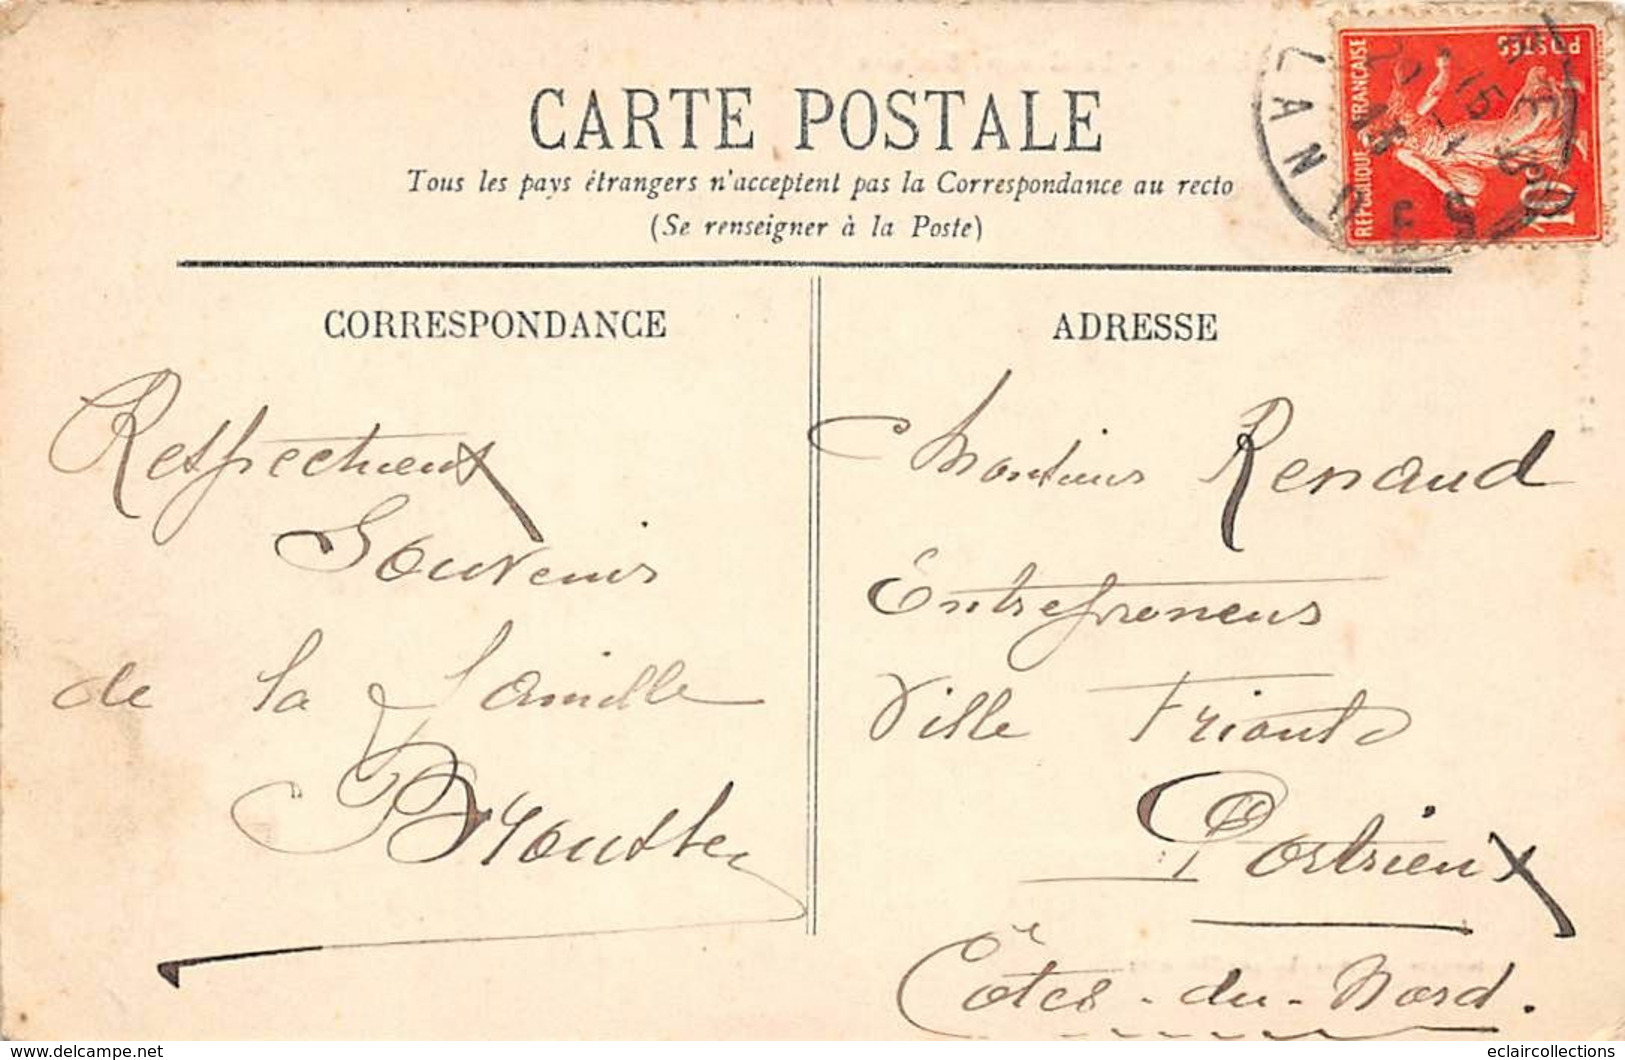 CARTE POSTALE
Tous les pays étrangers n'acceptent pas la Correspondance au recto
(Se renseigner à la Poste)
REPUBLIQUE FRANCAISE
POSTES
10
CORRESPONDANCE
Respectueux
Souvenir
de la famille
ADRESSE
Monsieur Renaud
Entrepreneur
Ville
Portrieux
Côtes-du-Nord.
eclaircollections
www.delcampe.net